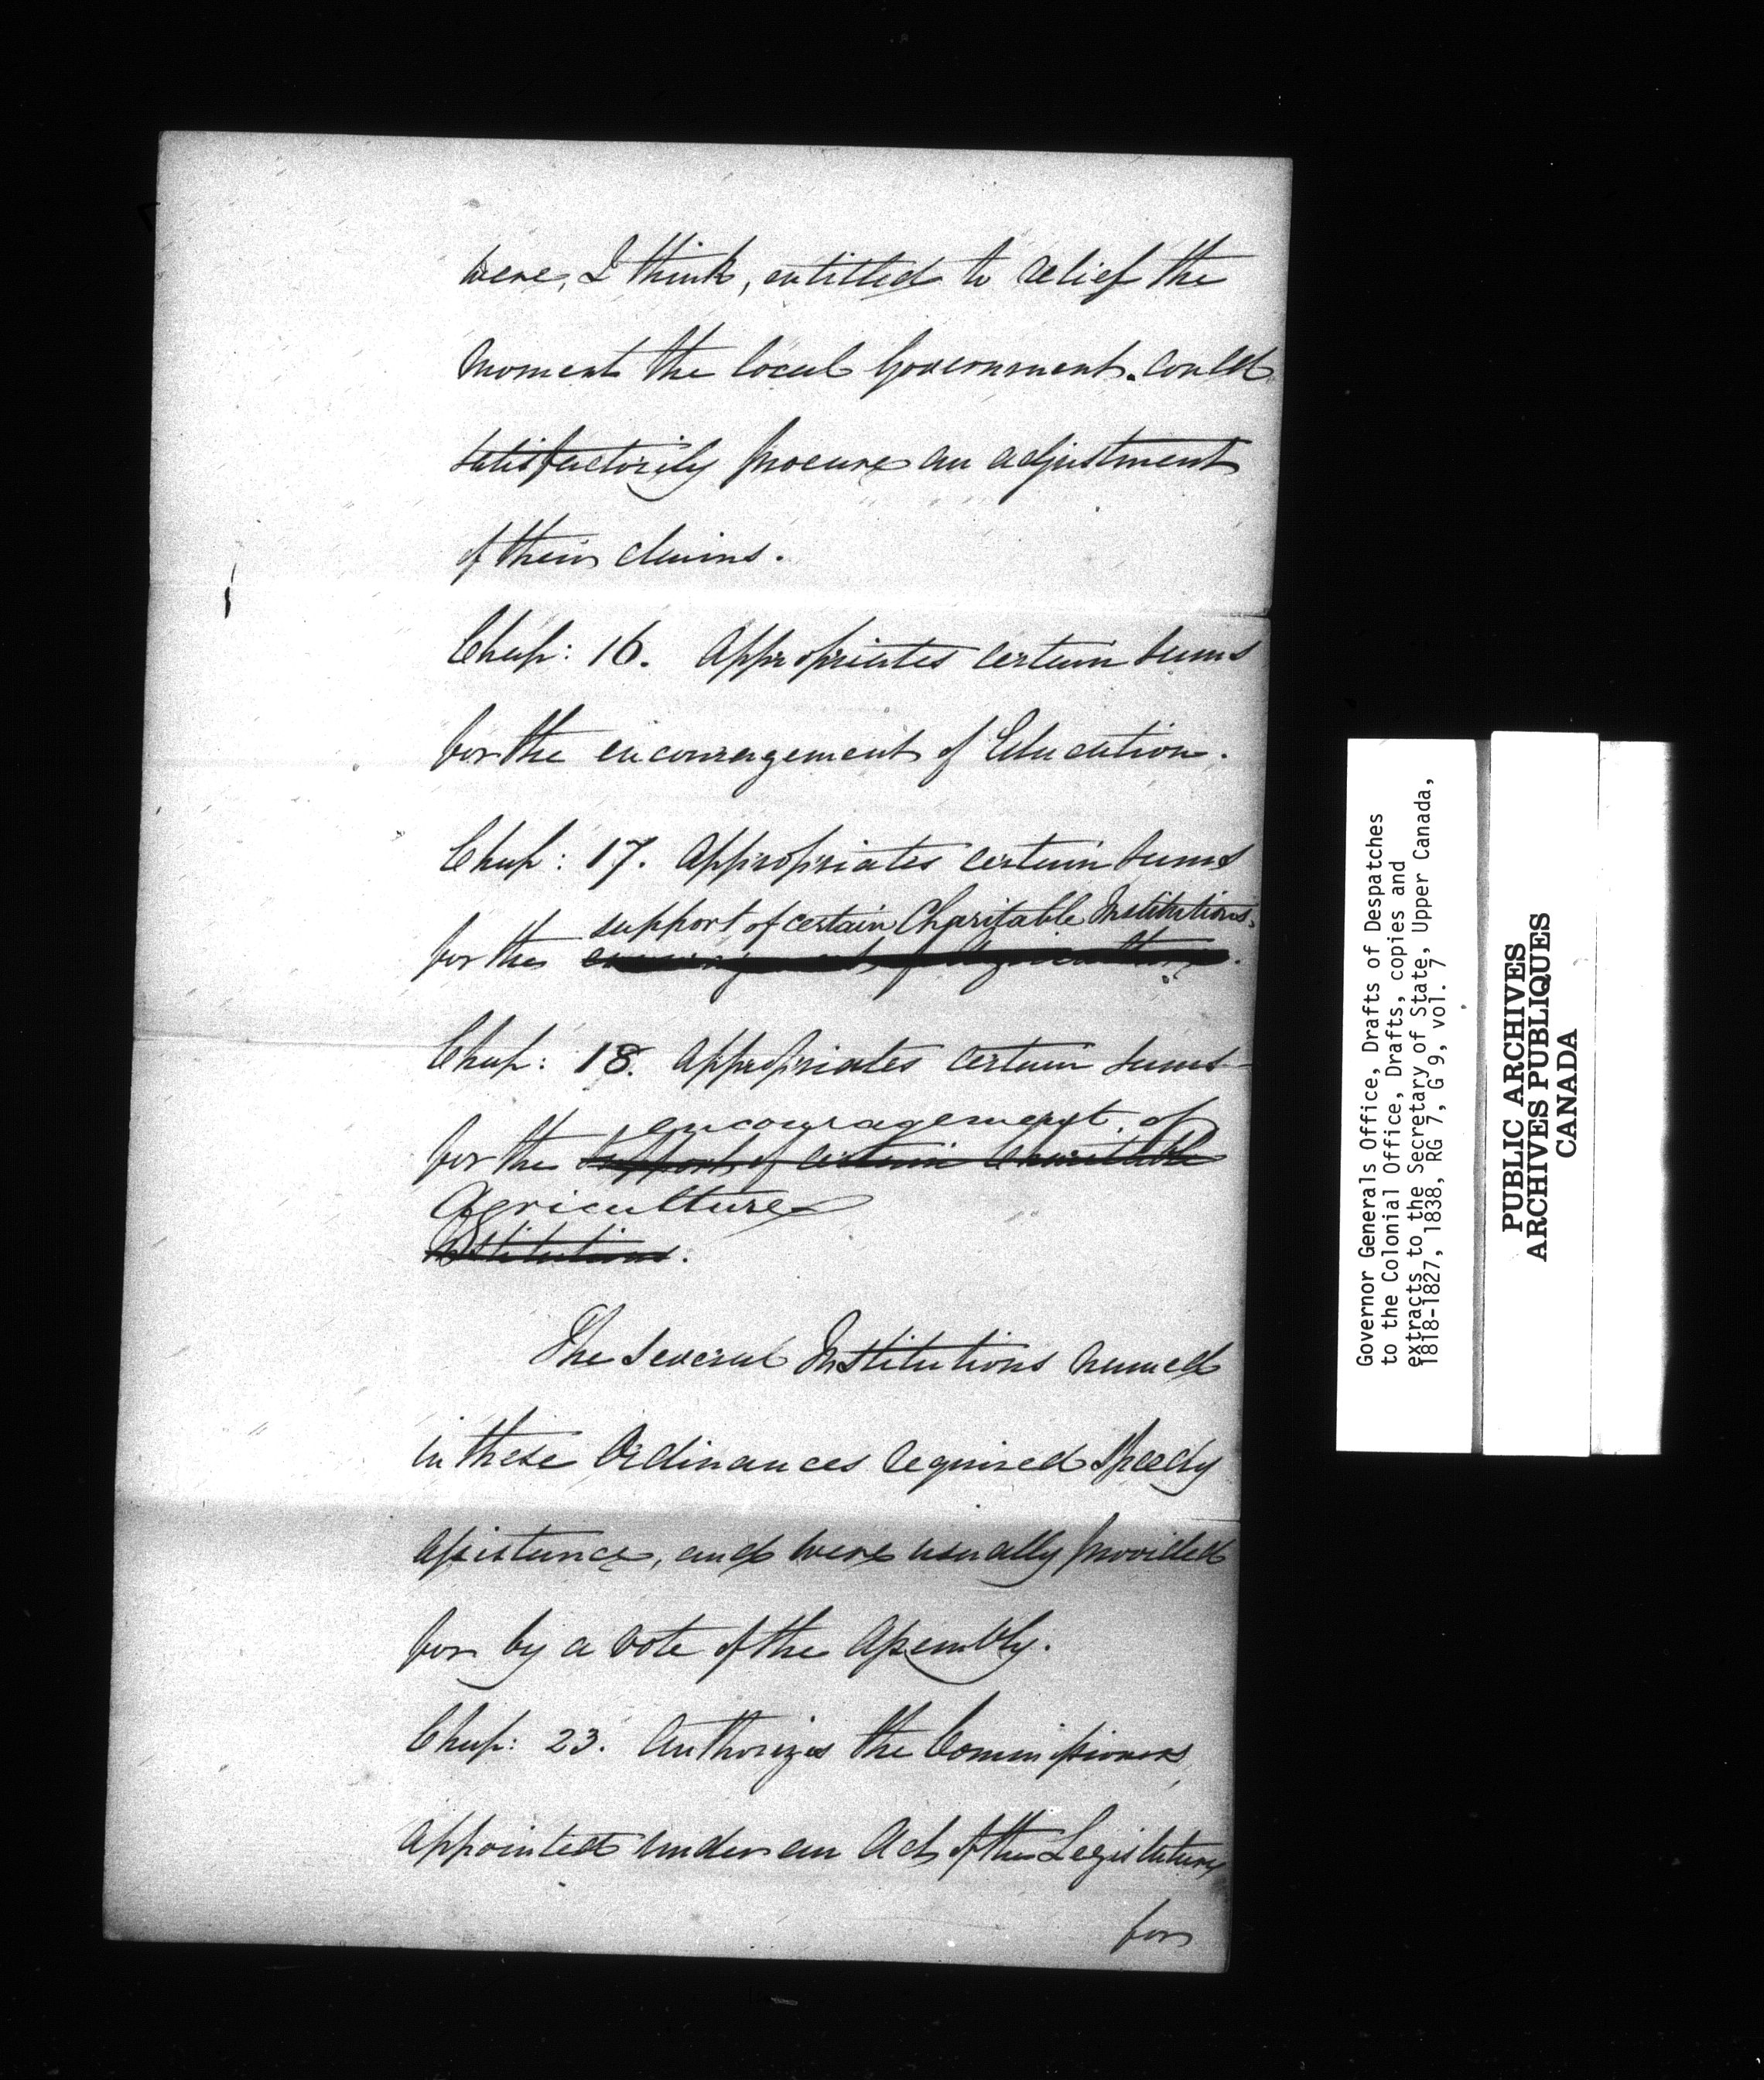 were, I think, entitled to relief the
moment the local Government could
satisfactorily procure an adjustment
of their claims.
Chap: 16. Appropriates certain sums
for the encouragement of Education.
Chap: 17. Appropriates certain sums
support of certain Charitable Institutions.
for the encouragement of Agriculture.
Chap: 18. Appropriates certain sums
encouragement of
for the support of certain Charitable
Agriculture
Institutions.
The several Institutions named
in these Ordinances required speedy
assistance, and were usually provided
for by a vote of the Assembly.
Chap: 23. Authorizes the Commissioners
appointed under an Act of the Legislature
for
Governor Generals Office, Drafts of Despatches
to the Colonial Office, Drafts, copies and
extracts to the Secretary of State, Upper Canada,
1818-1827, 1838, RG 7, G 9, vol. 7
PUBLIC ARCHIVES
ARCHIVES PUBLIQUES
CANADA